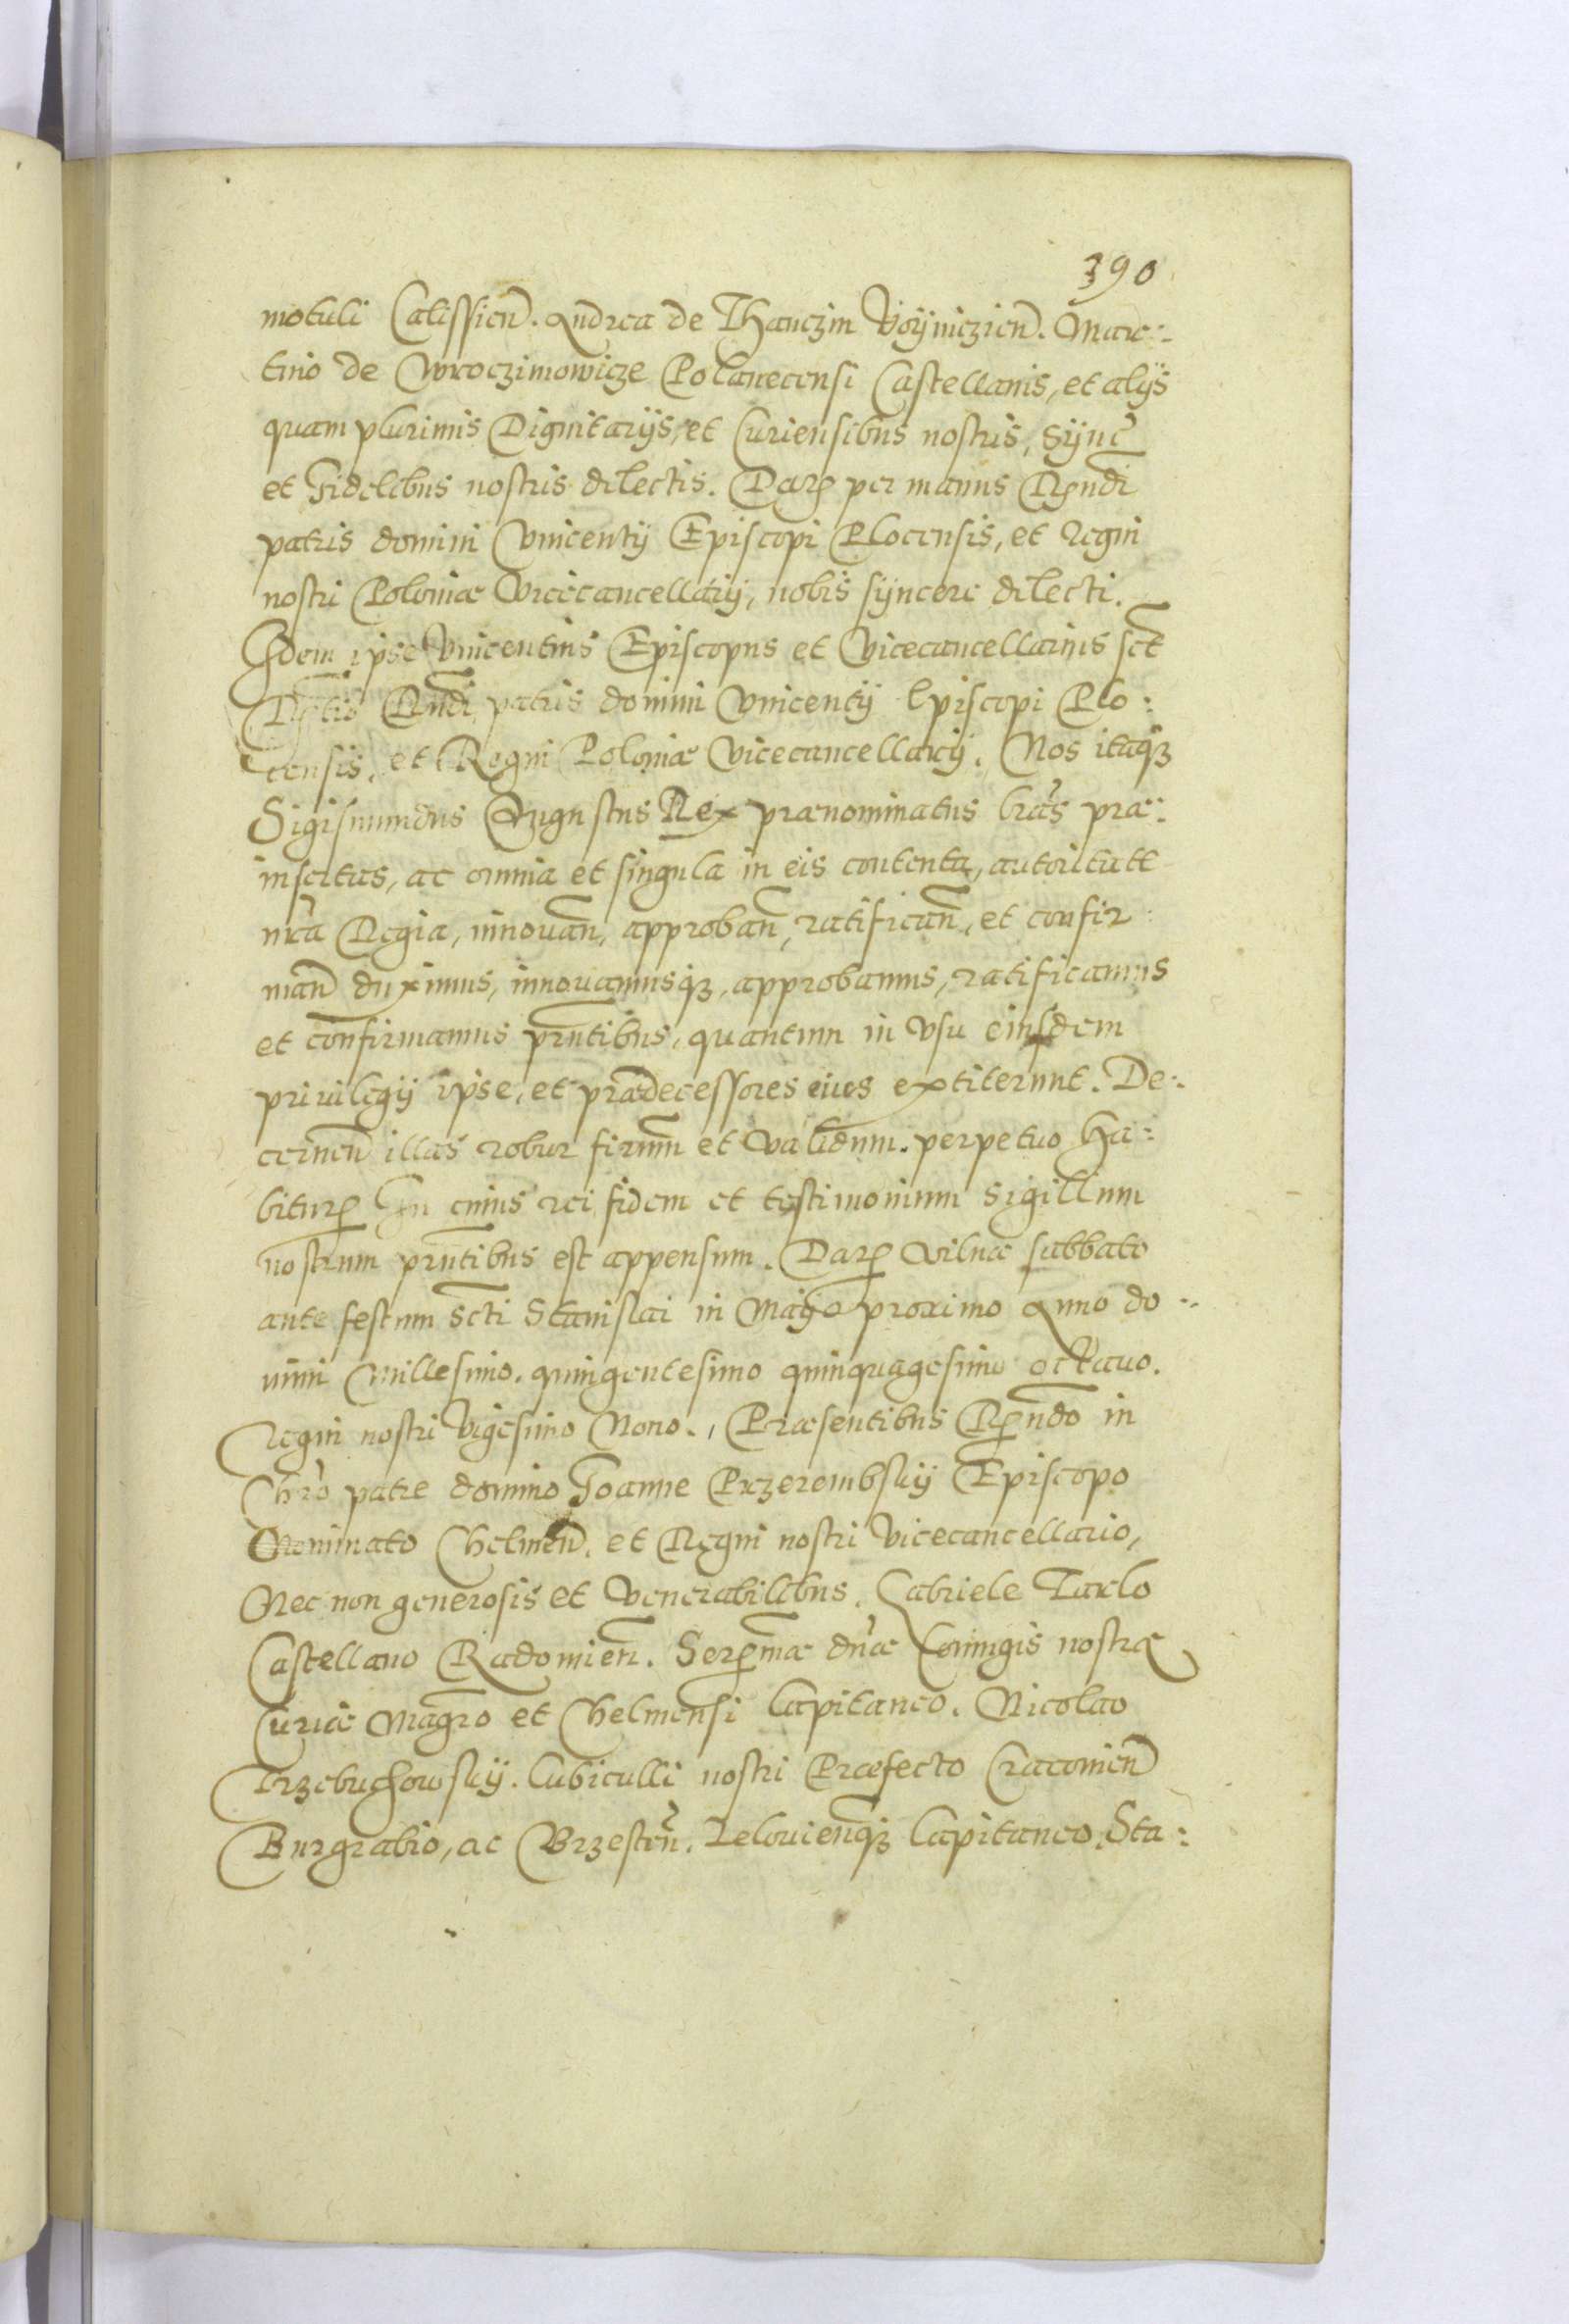 390
motuli Calissień. Andrea de Thanczin Voÿniczień. Mar-
tino de Wroczimowicze Polanecensi Castellanis, et alÿs
quam plurimis Dignitarÿs, et Curiensibus nostris, Sÿnč
et Fidelibus nostris dilectis. Daꝶ per manus Rꝫndi
patris domini Vincentÿ Episcopi Plocensis, et Regni
nostri Poloniæ Vicecancellarÿ, nobis sÿncere dilecti.
Idem ipse Vincentius Episcopus et Vicecancellarius sct
Rꝫtio Rndi patris domini Vincentÿ Episcopi Plo-
censis, et Regni Poloniæ Vicecancellarÿ. Nos itaqꝫ
Sigismundus Augustus Rex prænominatus lr̃as præ-
insertas, ac omnia et singula in eis contenta, autoritate
nr̃a Regia, innovañ, approbañ, ratificañ, et confir-
mañ duximus, innovamusqꝫ, approbamus, ratificamus
et confirmamus pr̃ntibus, quantum in vsu eiusdem
privilegÿ ipse, et prædecessores eius extiterunt. De-
cerneñ illas robur firmũ et validum perpetuo ha-
bituꝶ In cuius rei fidem et testimonium Sigillum
nostrum pr̃ntibus est appensum. Daꝶ Vilnæ sabbato
ante festum Scti Stanislai in Mayo proximo Anno do-
mini Millesimo quingentesimo quinquagesimo octavo.
Regni nostri Vigesimo Nono. Præsentibus Rꝫndo in
Chr̃o patre domino Joanne Przerembskÿ Episcopo
Nominato Chelmeñ. et Regni nostri Vicecancellario,
Nec non generosis et Venerabilibus. Gabriele Tarlo
Castellano Radomień. Serꝫmæ dñæ Coniugis nostræ
Curiæ Magr̃o et Chelmensi Capitaneo. Nicolao
Trzebuchowskÿ. Cubiculli nostri Præfecto Cracovień
Burgrabio, ac Brzesteñ. Lelovieñqꝫ Capitaneo. Sta-